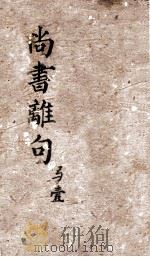 尚書離句
弓壹
www.toopoo.com